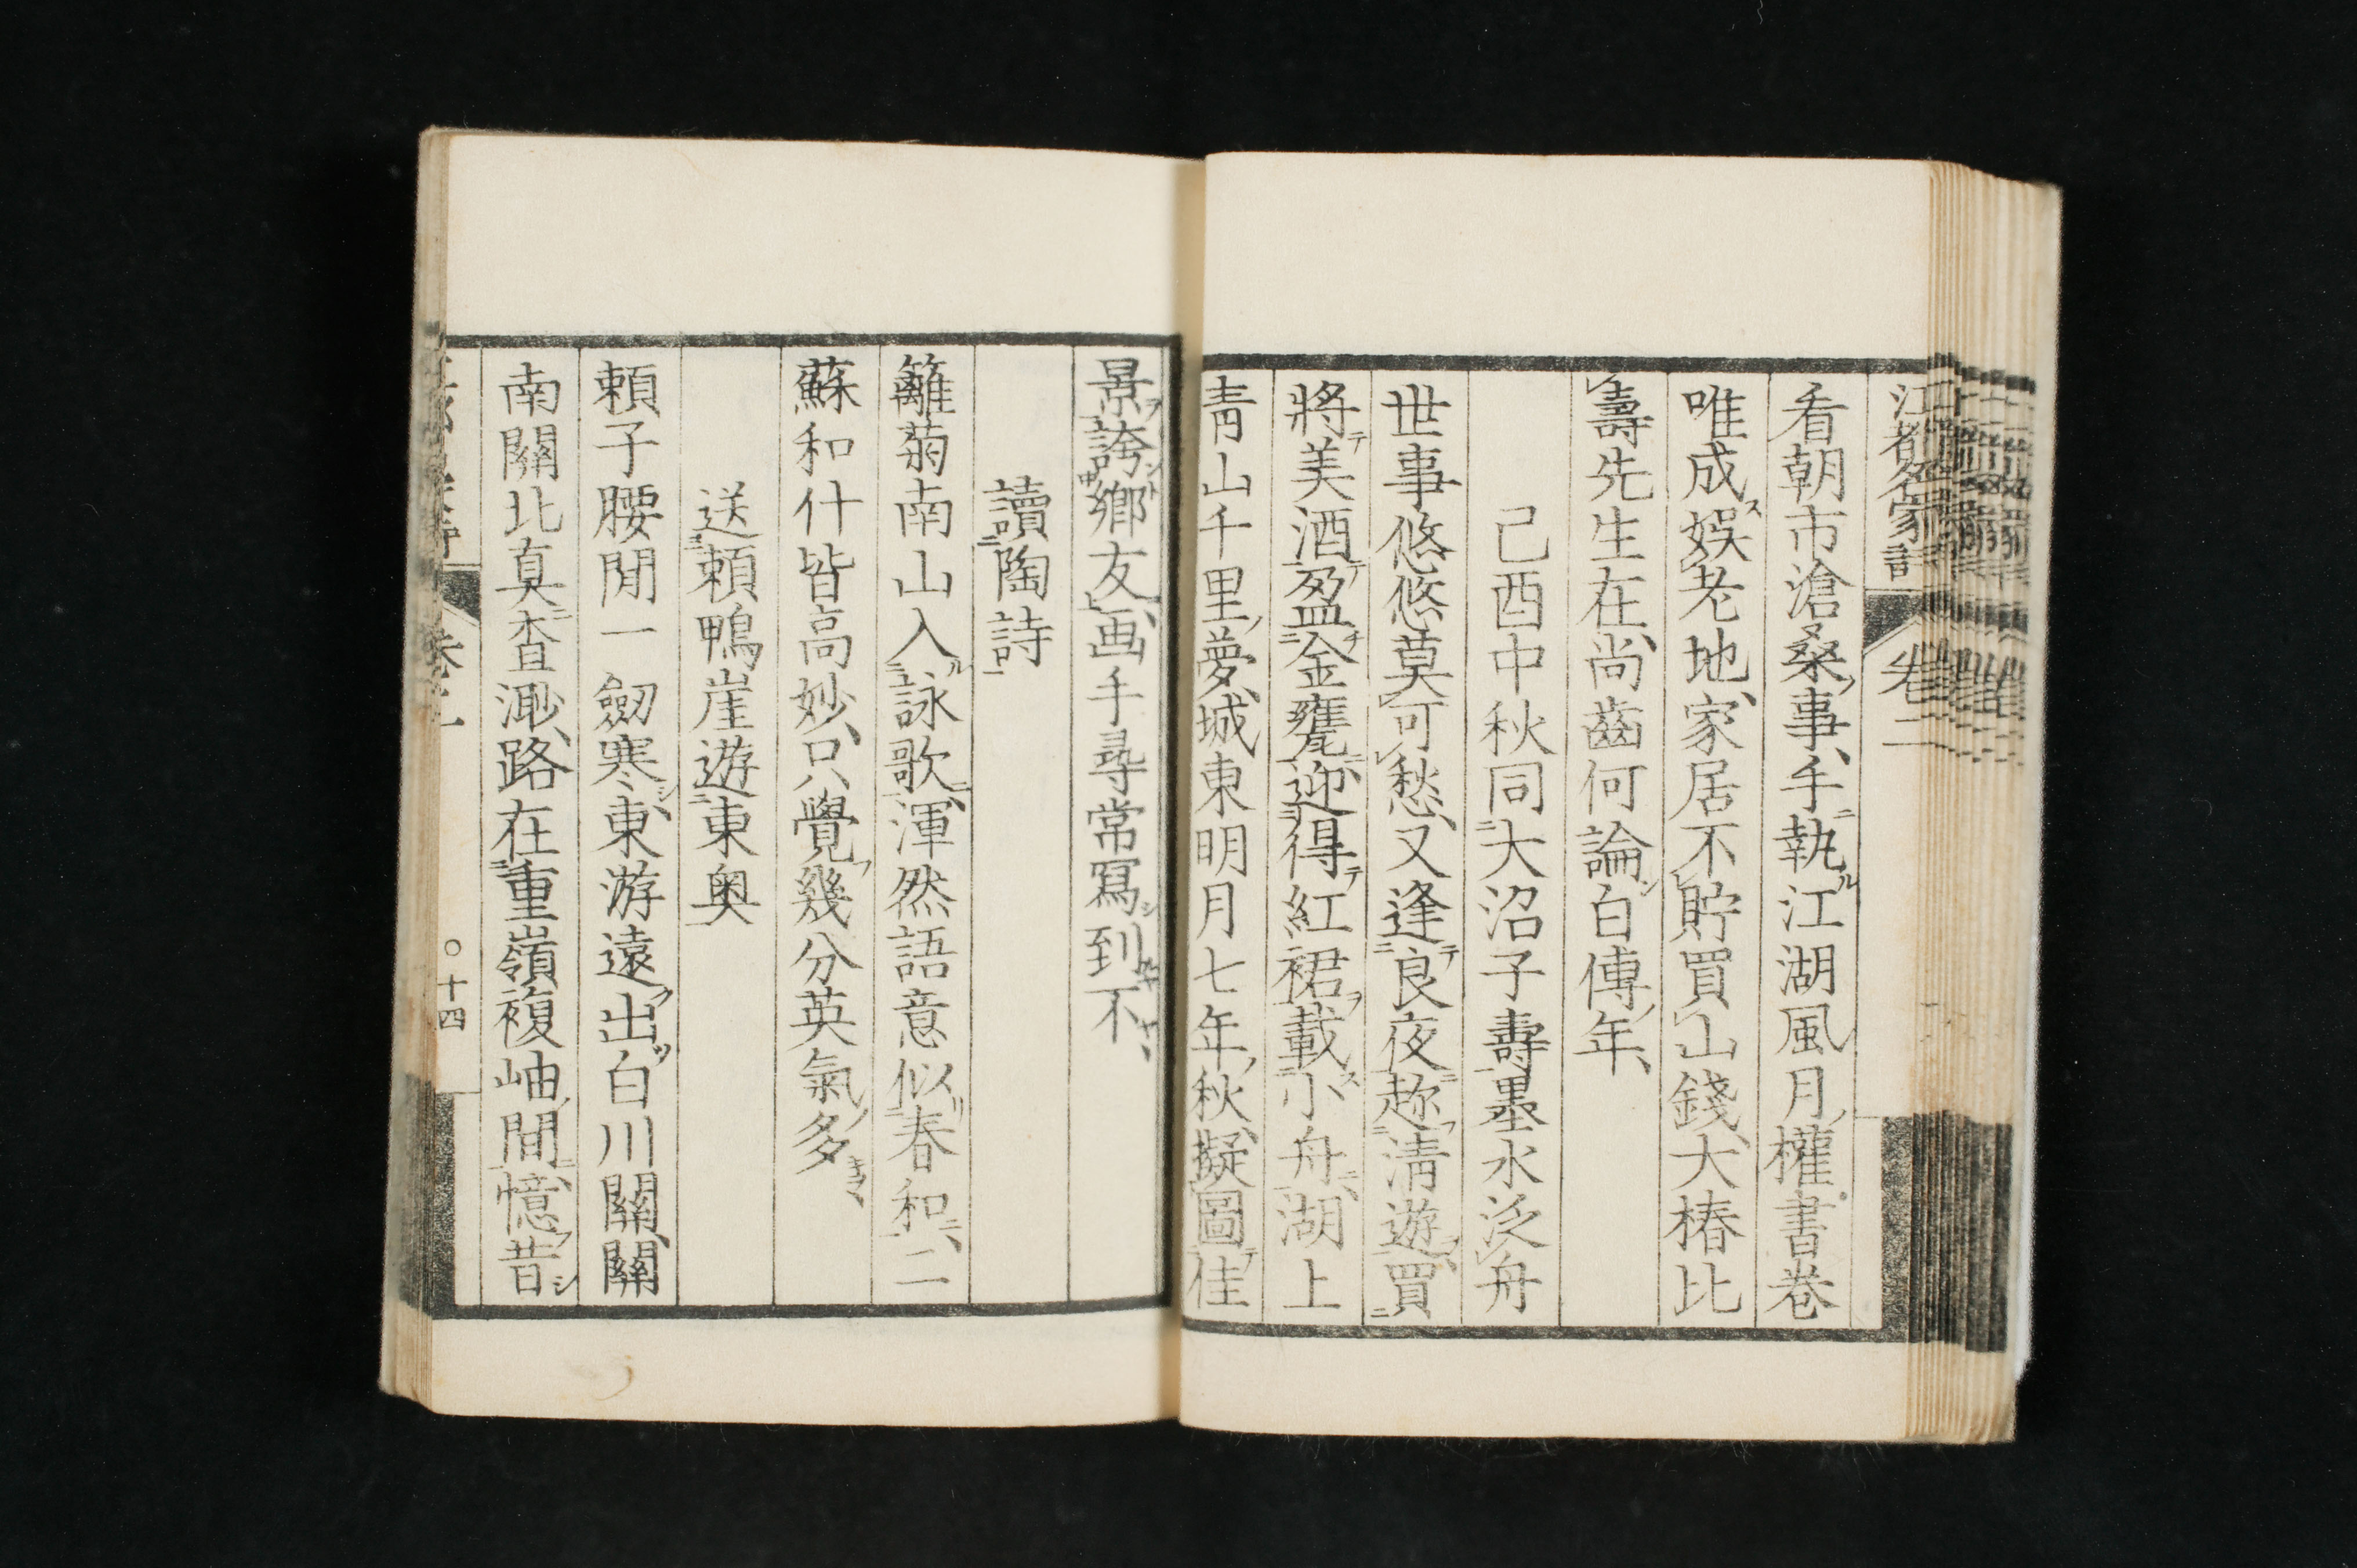 江都名家詩 卷二
看朝市滄桑事、手執江湖風月權書卷
唯成娯老地、家居不貯買山錢、大椿比
壽先生在、尚齒何論白傅年、
己酉中秋同大沼子壽墨水泛舟
世事悠悠莫可愁、又逢良夜趂淸遊買
將美酒盈金甕迎得紅裙載小舟、湖上
靑山千里夢、城東明月七年秋、擬圖佳
景誇鄉友、画手尋常寫到不、
讀陶詩
籬菊南山入詠歌、渾然語意似春和、二
蘇和什皆高妙、只覺幾分英氣多、
送賴鴨崖遊東奥
賴子腰間一劒寒、東游遠出白川關、關
南關北真査渺、路在重嶺複岫間、憶昔
十四